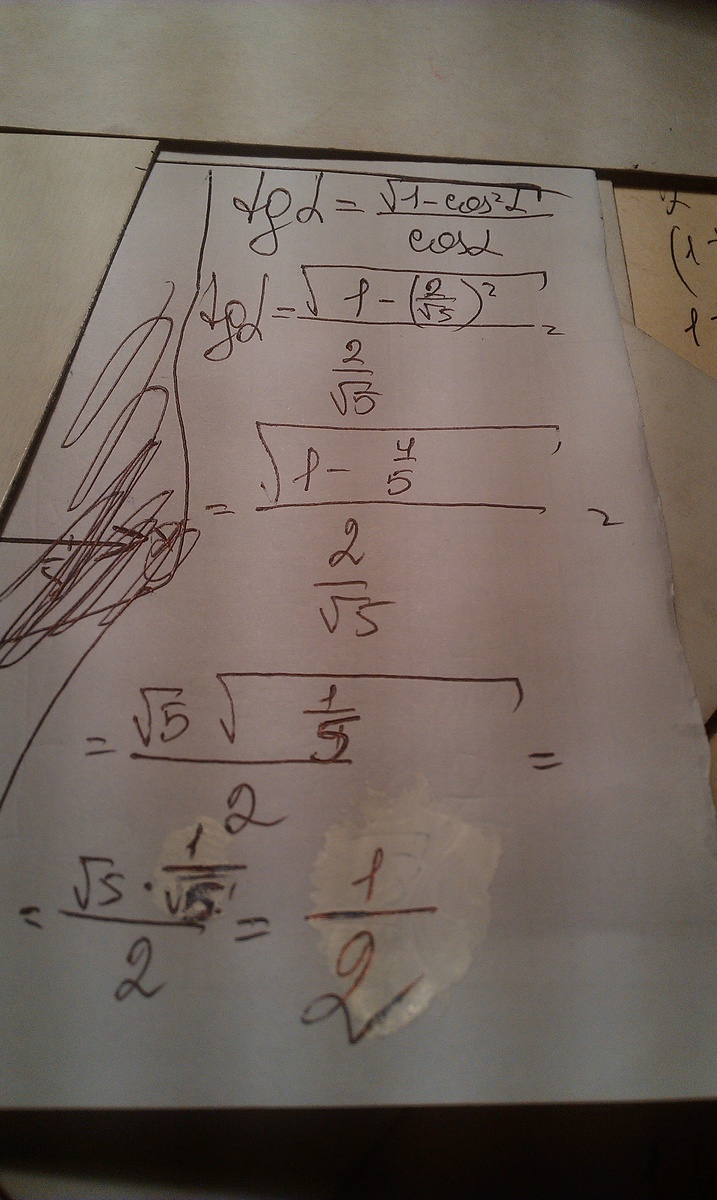 tgα = √(1-cos²α) / cosα
tgα = √(1-(2/√5)²) / (2/√5) =
= √(1-4/5) / (2/√5) =
= √5 √(1/5) / 2 =
= √5 · (1/√5) / 2 = 1/2